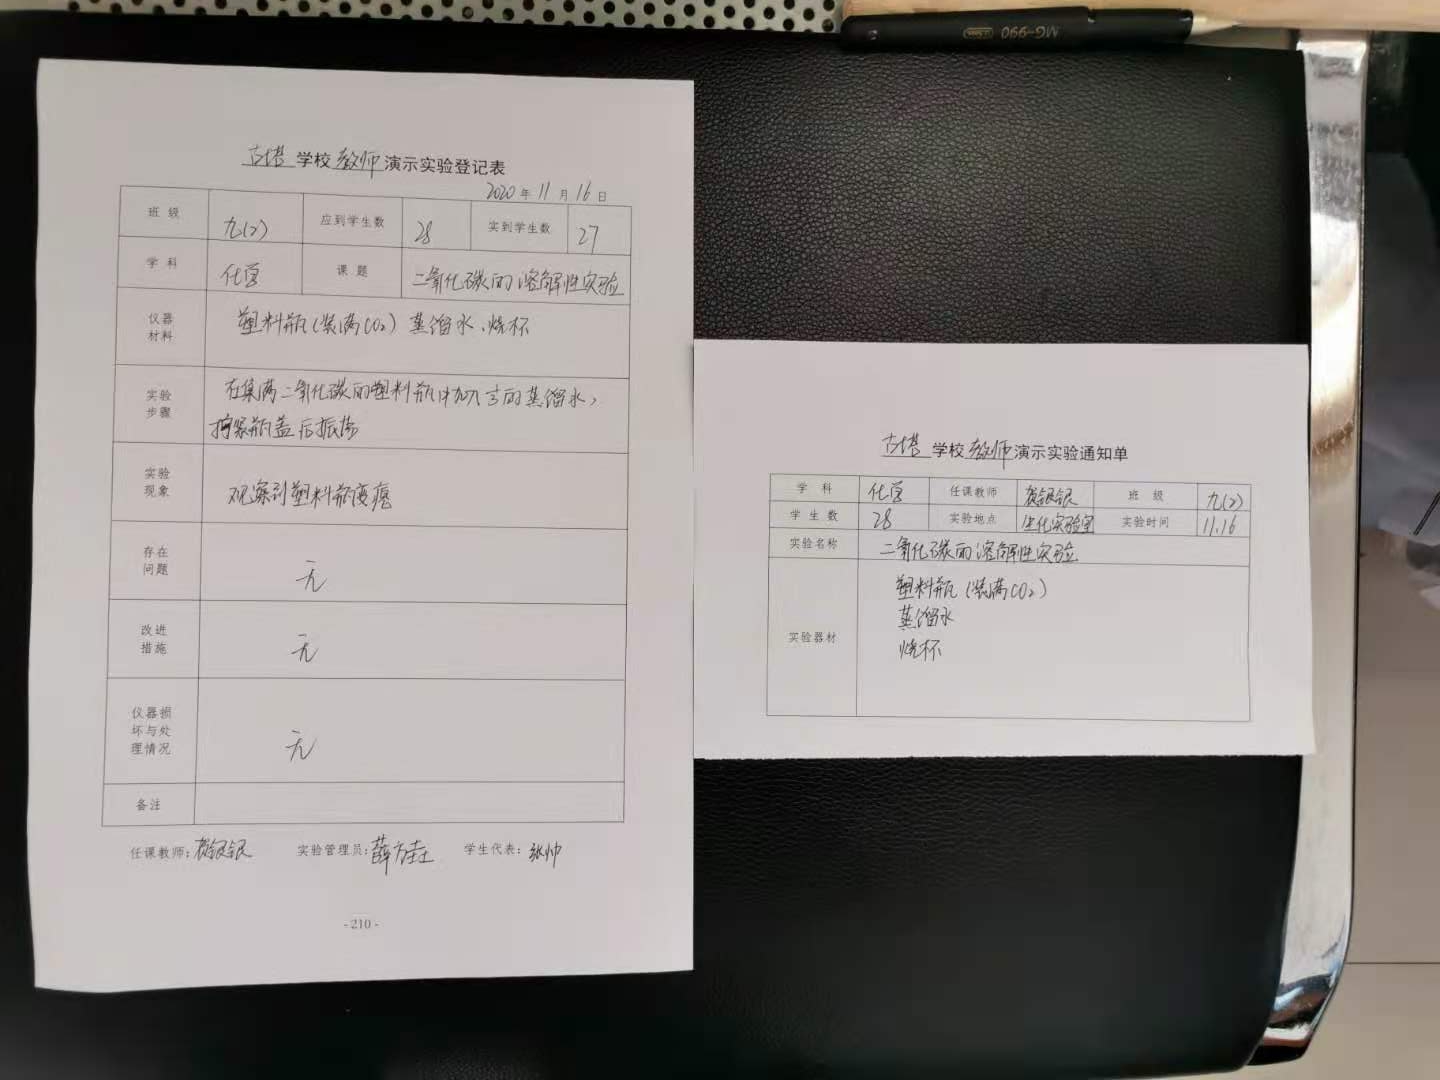 古塔 学校 教师 演示实验登记表
2020 年 11 月 16 日
班 级 九(2) 应到学生数 28 实到学生数 27
学 科 化学 课 题 二氧化碳的溶解性实验
仪器
材料
塑料瓶(装满CO₂) 蒸馏水、烧杯
实验
步骤
在集满二氧化碳的塑料瓶中加入⅓的蒸馏水,
拧紧瓶盖后振荡
实验
现象
观察到塑料瓶变瘪
存在
问题
无
改进
措施
无
仪器损
坏与处
理情况
无
备注
任课教师: 银银 实验管理员: 薛方 学生代表: 张帅
- 210 -
MG-990
古塔 学校 教师 演示实验通知单
学 科 化学 任课教师 银银 班 级 九(2)
学 生 数 28 实验地点 生化实验室 实验时间 11.16
实验名称 二氧化碳的溶解性实验
实验器材
塑料瓶(装满CO₂)
蒸馏水
烧杯